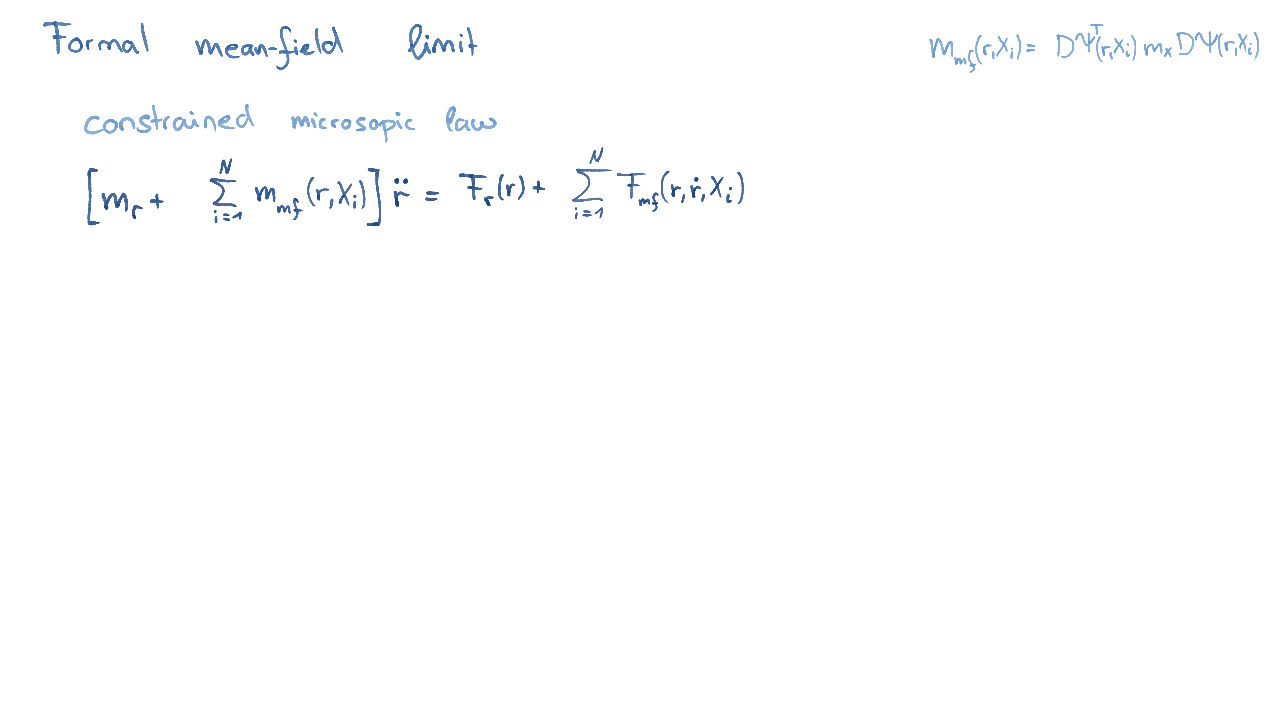 Formal mean-field limit
m_mf(r,X_i) = DΨ^T(r,X_i) m_x DΨ(r,X_i)
constrained microsopic law
[m_r + ∑_{i=1}^N m_mf(r,X_i)] r̈ = F_r(r) + ∑_{i=1}^N F_mf(r,ṙ,X_i)